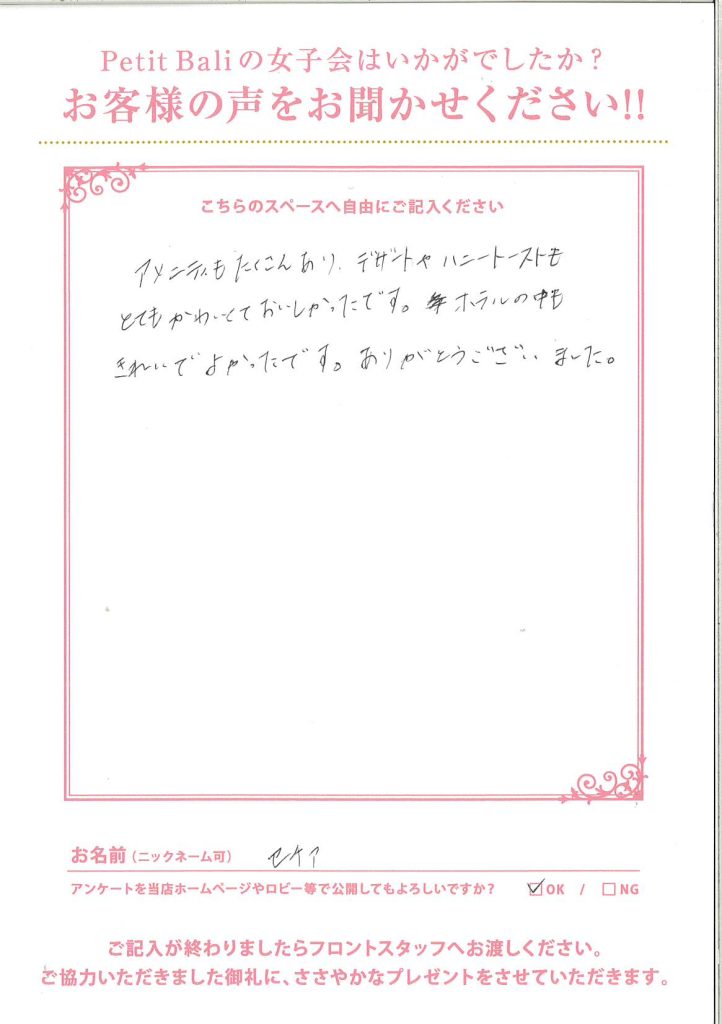 Petit Baliの女子会はいかがでしたか？
お客様の声をお聞かせください!!
こちらのスペースへ自由にご記入ください
アメニティもたくさんあり、デザートやハニートーストも
とてもかわいくておいしかったです。ホテルの中も
きれいでよかったです。ありがとうございました。
お名前（ニックネーム可） セケア
アンケートを当店ホームページやロビー等で公開してもよろしいですか？ ☑OK / □NG
ご記入が終わりましたらフロントスタッフへお渡しください。
ご協力いただきました御礼に、ささやかなプレゼントをさせていただきます。